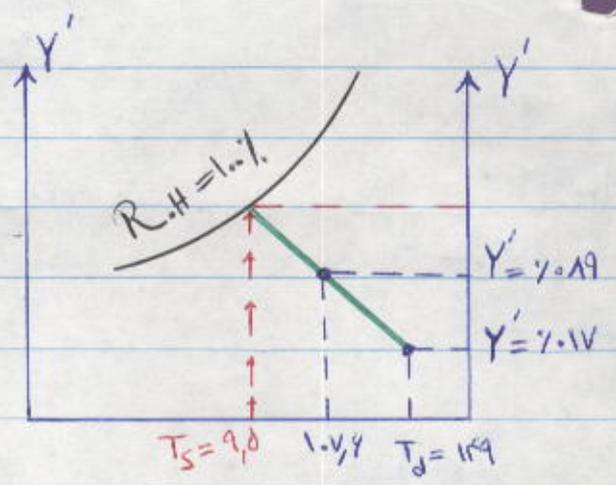 Y'
Y'
R.H = ۱۰۰٪
Y' = ۰/۰۸۹
Y' = ۰/۰۱۷
T_s = ۹,۵
۱۰۷,۶
T_d = ۱۴۹